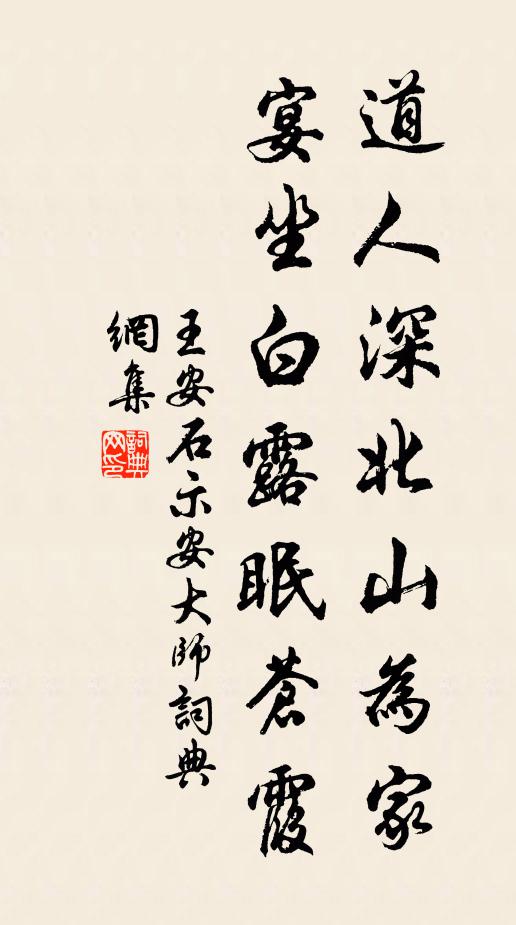 道人深北山為家
宴坐白露眠蒼霞
王安石示安大師詞典
網集
詞典網印